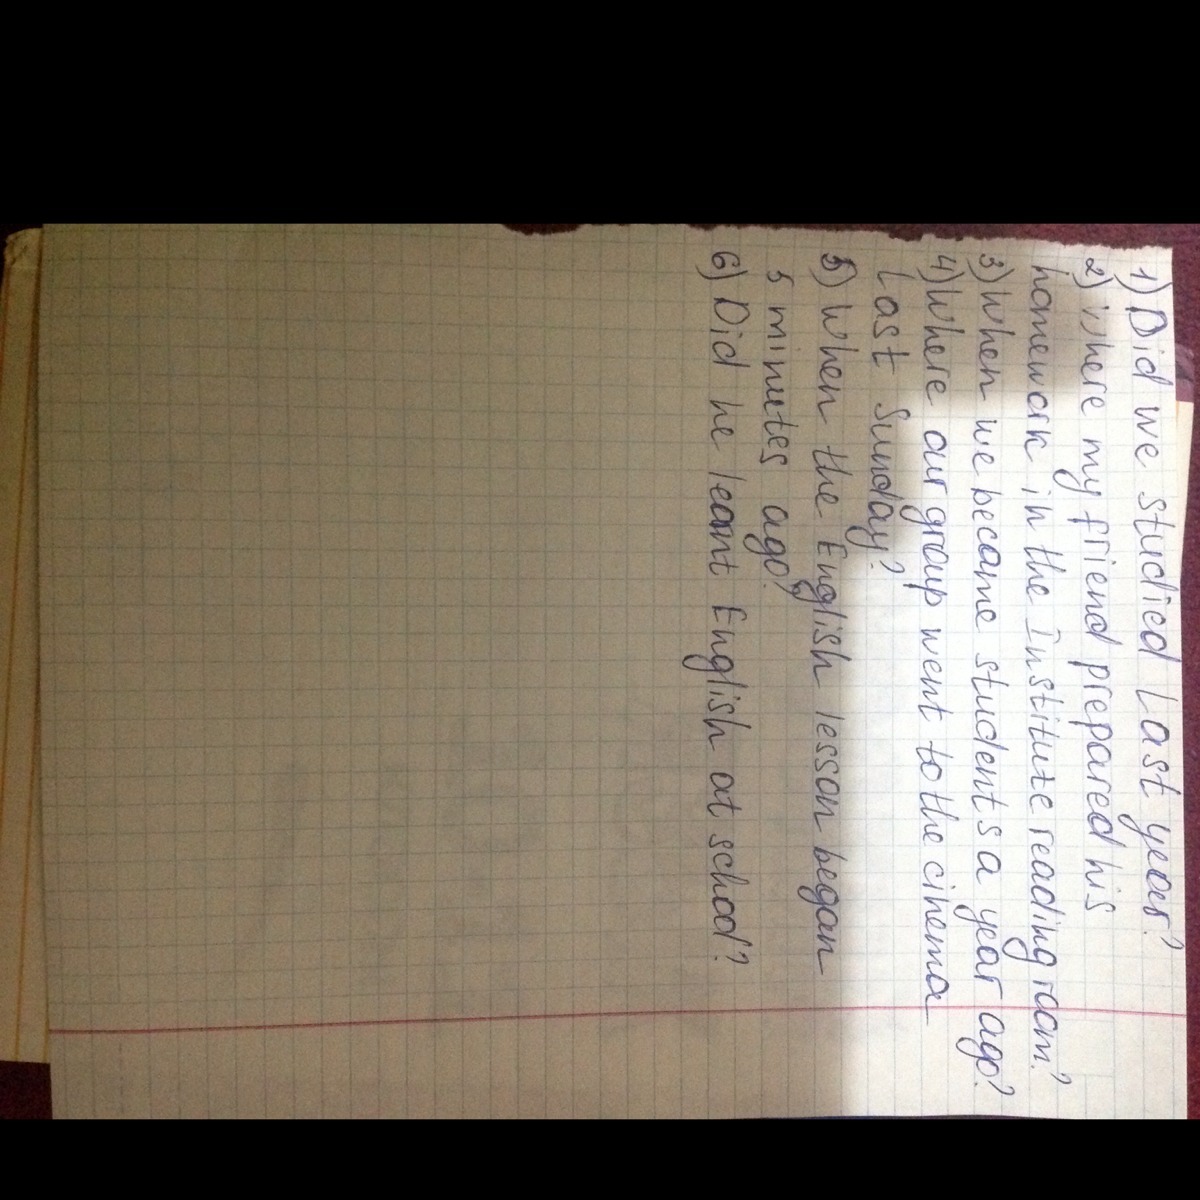 1) Did we studied last year?
2) Where my friend prepared his
homework in the Institute reading room?
3) When we became students a year ago?
4) Where our group went to the cinema
last Sunday?
5) When the English lesson began
5 minutes ago?
6) Did he leant English at school?